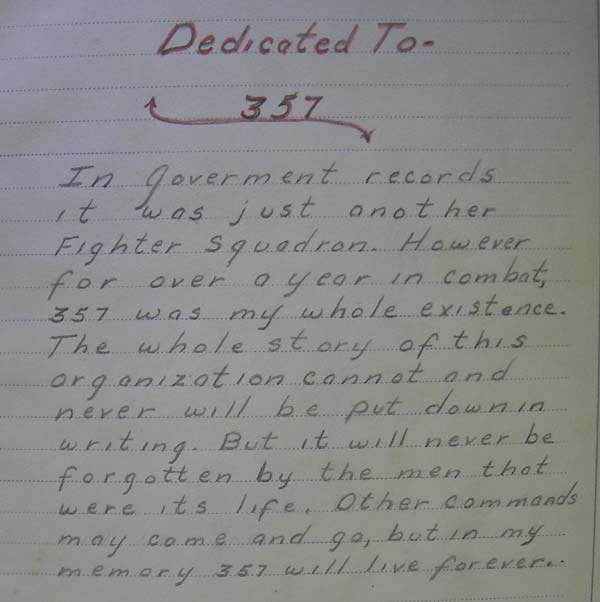 Dedicated To-
357
In goverment records
it was just another
Fighter Squadron. However
for over a year in combat,
357 was my whole existence.
The whole story of this
organization cannot and
never will be put down in
writing. But it will never be
forgotten by the men that
were its life. Other commands
may come and go, but in my
memory 357 will live forever..